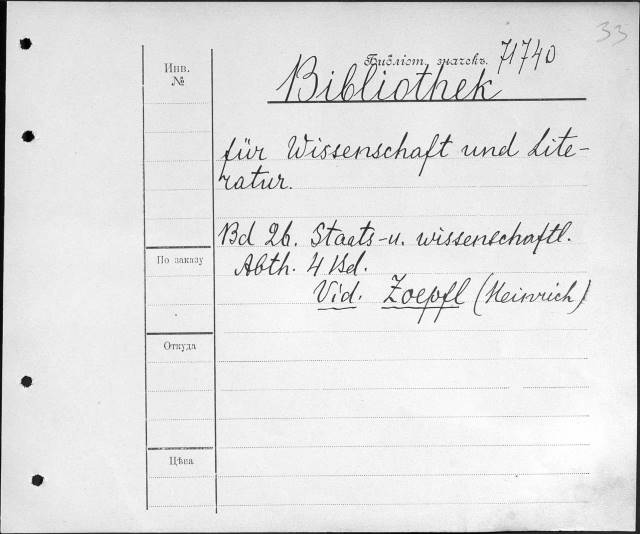 33
Инв.
№
Библіот. значекъ. 71740
Bibliothek
für Wissenschaft und Lite-
ratur.
Bd 26. Staats-u. wissenschaftl.
По заказу
Abth. 4 Bd.
Vid. Zoepfl (Heinrich)
Откуда
Цѣна